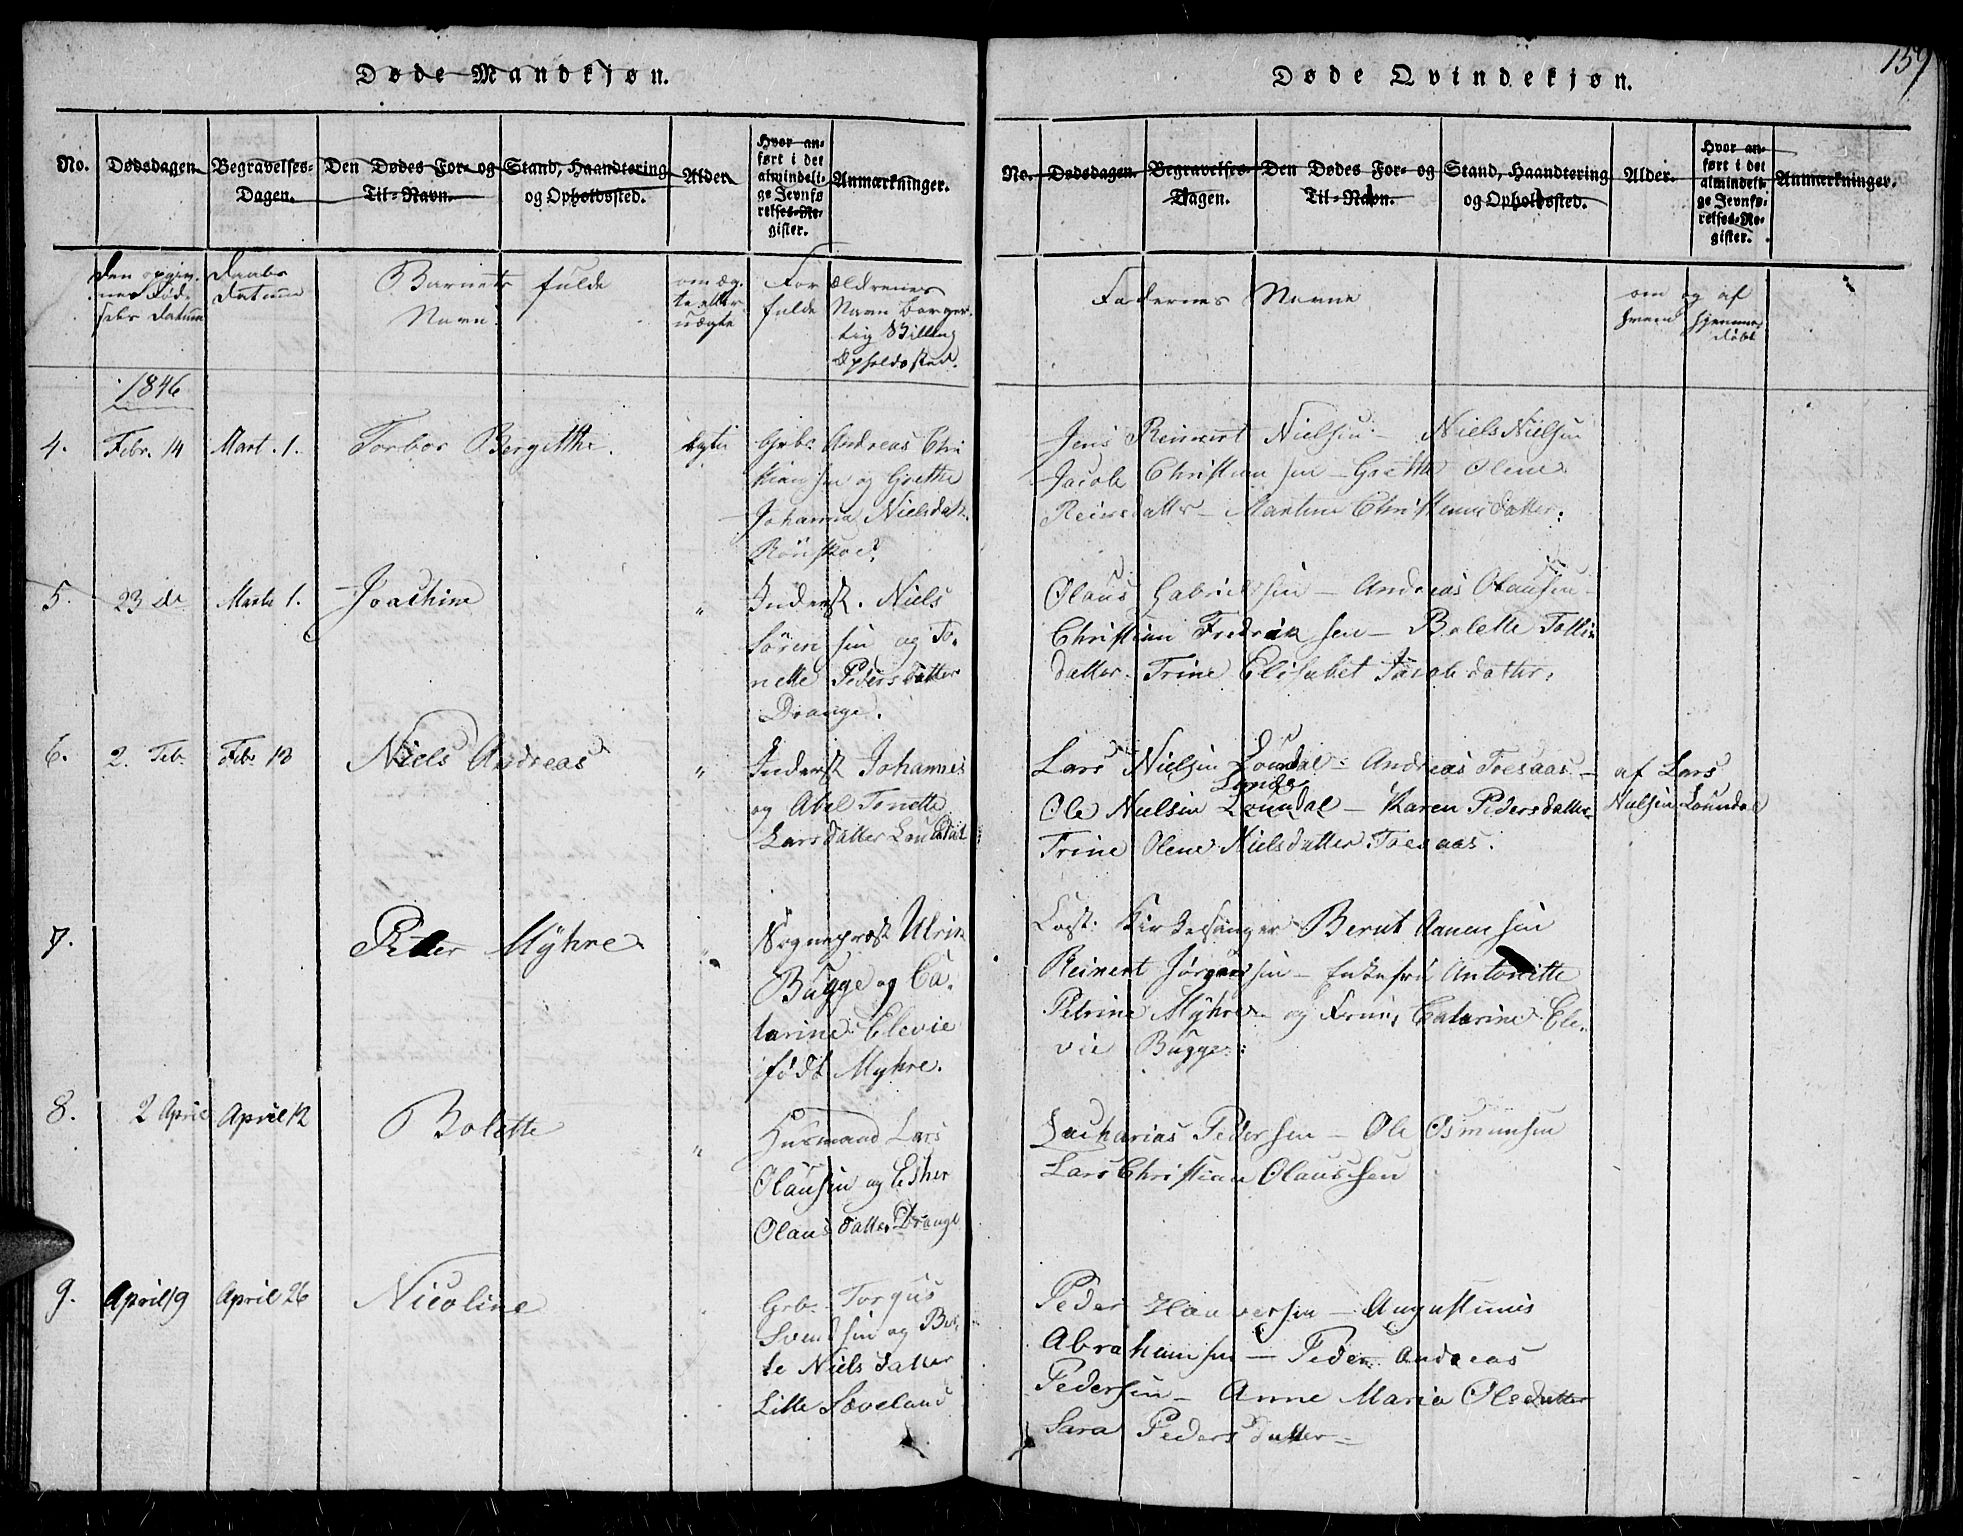 Døde Mandkjøn.
No.
Dødsdagen.
Begravelses-
Dagen.
Den Dødes For- og
Til-Navn.
Stand, Haandtering
og Opholdssted.
Alder
Hvor an-
ført i det
almindeli-
ge Jevnfø-
relses-Re-
gister.
Anmærkninger.
Daabs
Datum
Barnets fulde
Navn
om æg-
te eller
uægte
Forældrenes
fulde Navn borger-
lig Stilling
Opholdssted.
1846
4. Febr. 14 Mart. 1. Torbor Bergitthe. ægte Grbr. Andreas Chri
stiansen og Grethe
Johanna Nielsdat.
5. 23 de Marts 1. Joachine " Inderst. Niels
Sörensen og To-
nette Pedersdatter
Drange.
6. 2. Feb. Febr 13 Niels Andreas " Inderst Johannes
og Abel Tonette
Larsdatter Loundal
7. Peder Myhre " Sognepræst Ulrik
Bugge og Ca-
tarine Elevie
født Myhre.
8. 2 April April 12 Bolette " Husmand Lars
Olausen og Esther
Olausdatter Drange
9. April 19 April 26 Nicoline " Grbr. Torgus
Svendsen og Ber-
te Nielsdatter
Lille Sæveland
159
Døde Qvindekjøn.
No.
Dødsdagen.
Begravelses-
Dagen.
Den Dødes For- og
Til-Navn.
Stand, Haandtering
og Opholdssted.
Alder.
Hvor an-
ført i det
almindeli-
ge Jevnfø-
relses-Re-
gister.
Anmærkninger.
Faddernes Navne
om og af
hvem hjemme-
døbt
Jens Reinert Nielsen - Niels Nielsen
Jacob Christiansen - Grethe Olene
Reinsdatter - Martine Christensdatter.
Olaus Gabrielsen - Andreas Olausen -
Christian Fredriksen - Bolette Tollis
datter. Trine Elisabet Jacobsdatter.
Lars Nielsen Loundal - Andreas Toesaas -
af Lars
Ole Nielsen Loundal - Karen Pedersdatter
Nielsen Loundal
Trine Olene Nielsdatter Toesaas.
Const. Kirkesanger Bernt Aanensen
Reinert Jørgensen - Enkefru Antonette
Petrine Myhre - og Fruen Catarine Ele-
vie Bugge.
Zacharias Pedersen - Ole Osmunsen
Lars Christian Olaussen
Peder Haaversen - Augustinus
Abrahamsen - Peder Andreas
Pedersen - Anne Maria Olsdatter
Sara Pedersdatter -